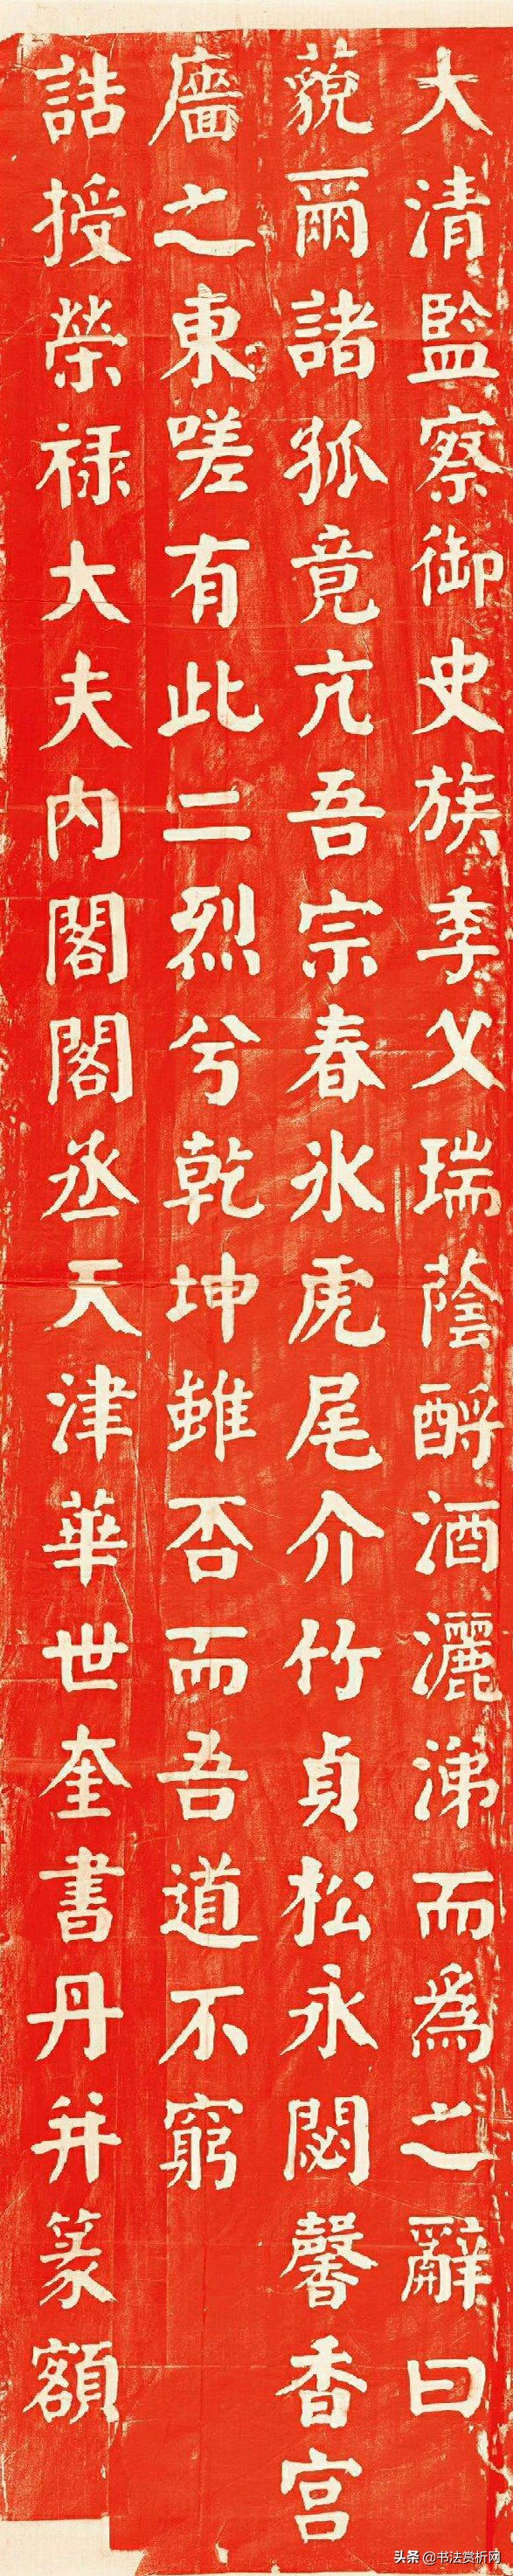 大清監察御史族季父瑞蔭酹酒灑涕而為之辭曰
藐爾諸孤竟亢吾宗春氷虎尾介竹貞松永閟馨香宫
廧之東嗟有此二烈兮乾坤雖否而吾道不窮
誥授榮禄大夫内閣閣丞天津華世奎書丹并篆額
头条 @书法赏析网